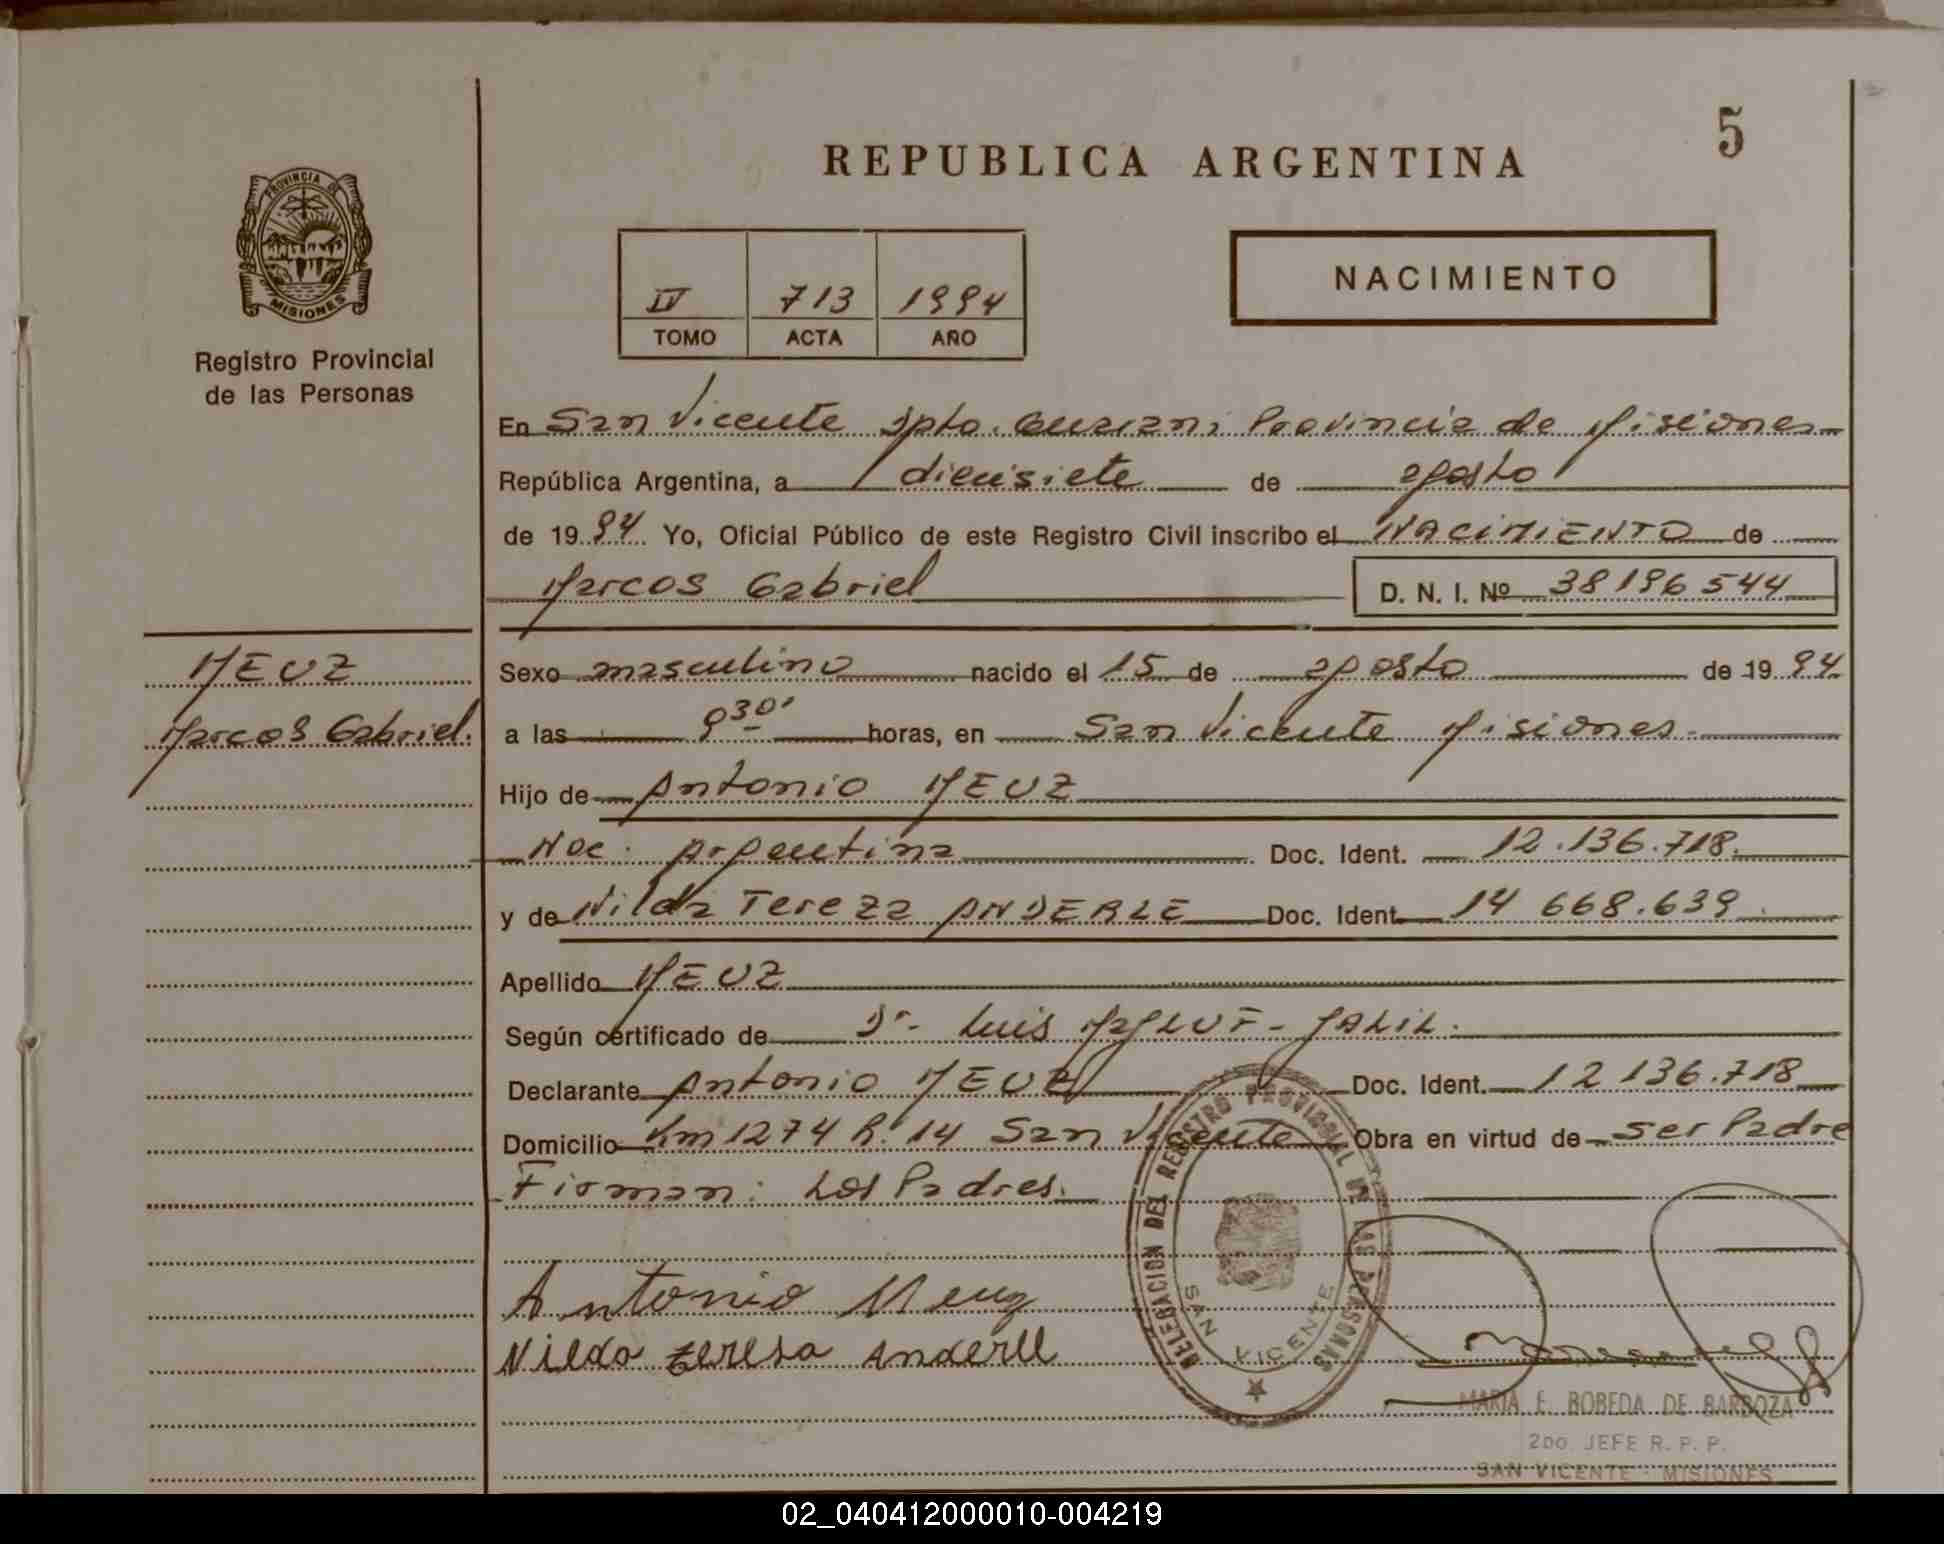 5
REPUBLICA ARGENTINA
PROVINCIA DE
MISIONES
Registro Provincial
de las Personas
IV 713 1994
TOMO ACTA AÑO
NACIMIENTO
En San Vicente Dpto. Guarani Provincia de Misiones
República Argentina, a diecisiete de agosto
de 19 94 Yo, Oficial Público de este Registro Civil inscribo el NACIMIENTO de
Marcos Gabriel D. N. I. Nº 38196544
MEUZ
Marcos Gabriel.
Sexo masculino nacido el 15 de agosto de 19 94
a las 9 30' horas, en San Vicente Misiones.
Hijo de Antonio MEUZ
Nac. Argentina Doc. Ident. 12.136.718.
y de Nilda Tereza ANDERLE Doc. Ident. 14 668.639
Apellido MEUZ
Según certificado de Dr. Luis JALIL.
Declarante Antonio MEUZ Doc. Ident. 12 136.718
Domicilio Km 1274 R. 14 San Vicente Obra en virtud de ser Padre
Firman: Los Padres.
Antonio Meuz
Nilda teresa Anderle
DELEGACION DEL REGISTRO PROVINCIAL DE LAS PERSONAS
SAN VICENTE
MARIA E. BOBEDA DE BARBOZA
2DO JEFE R. P. P.
SAN VICENTE - MISIONES
02_040412000010-004219